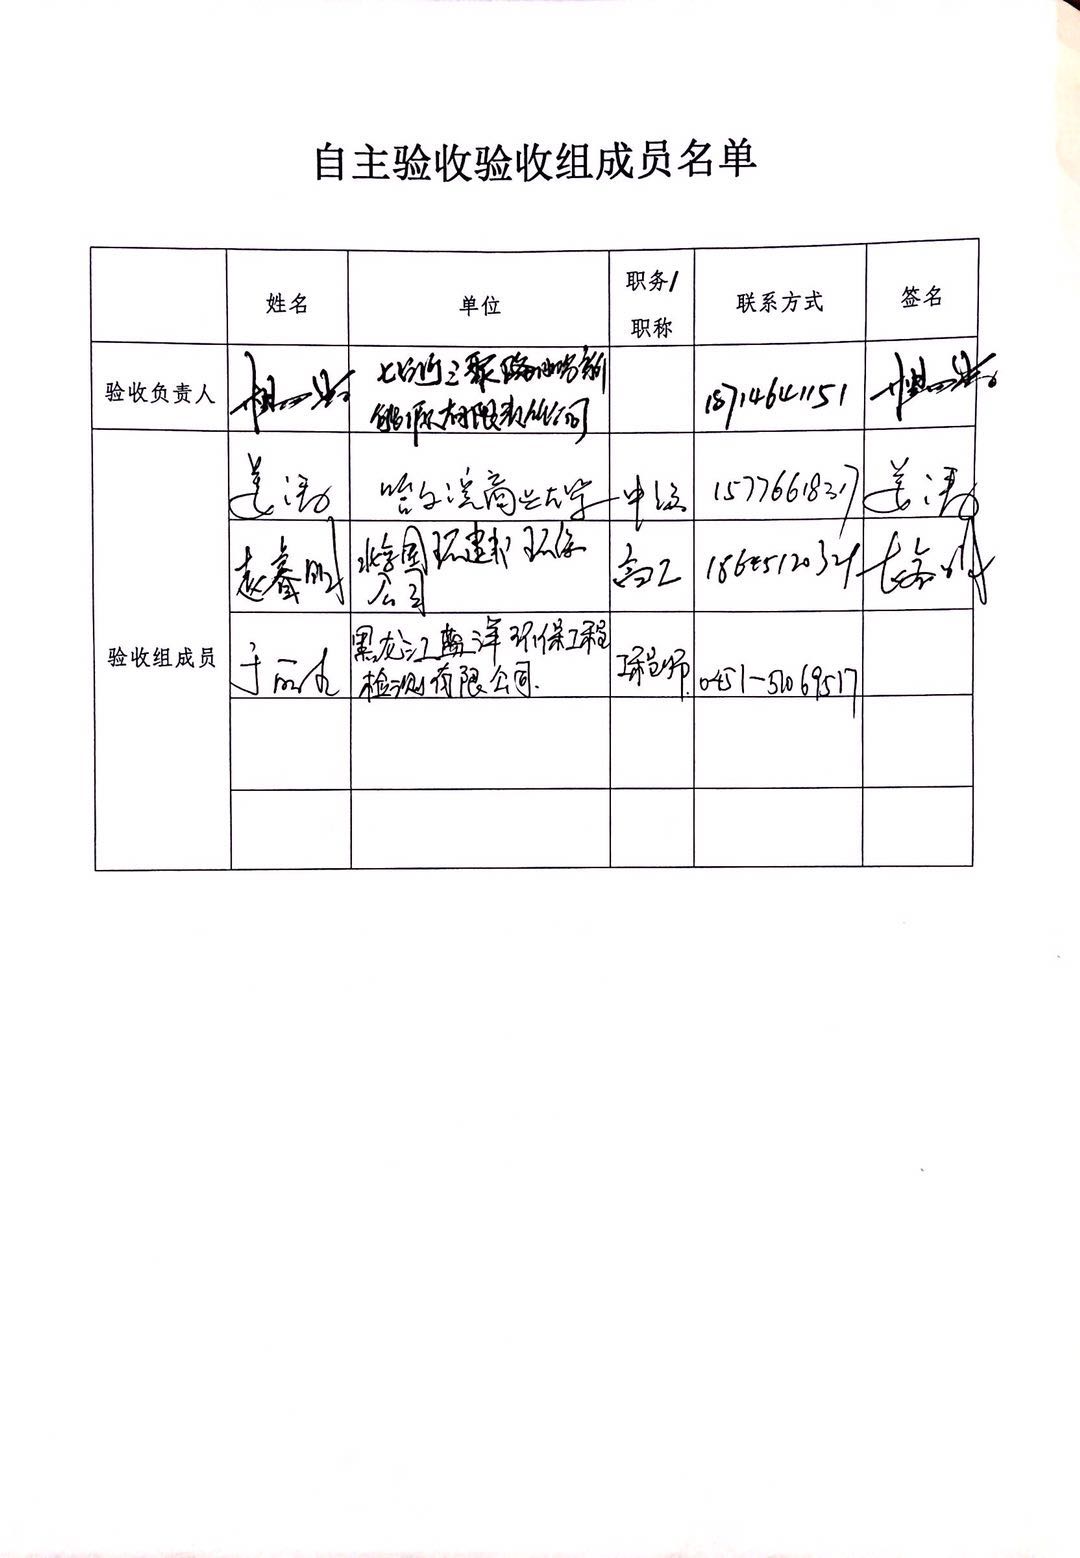 自主验收验收组成员名单
姓名
单位
职务/
职称
联系方式
签名
验收负责人
七台河三聚隆鹏新
能源有限责任公司
18714641151
验收组成员
姜涛
哈尔滨商业大学
中级
15776618317
姜涛
袁睿明
北京国环建邦环保
公司
高工
18645120321
于丽
黑龙江蓝洋环保工程
检测有限公司.
工程师
0451-51069517